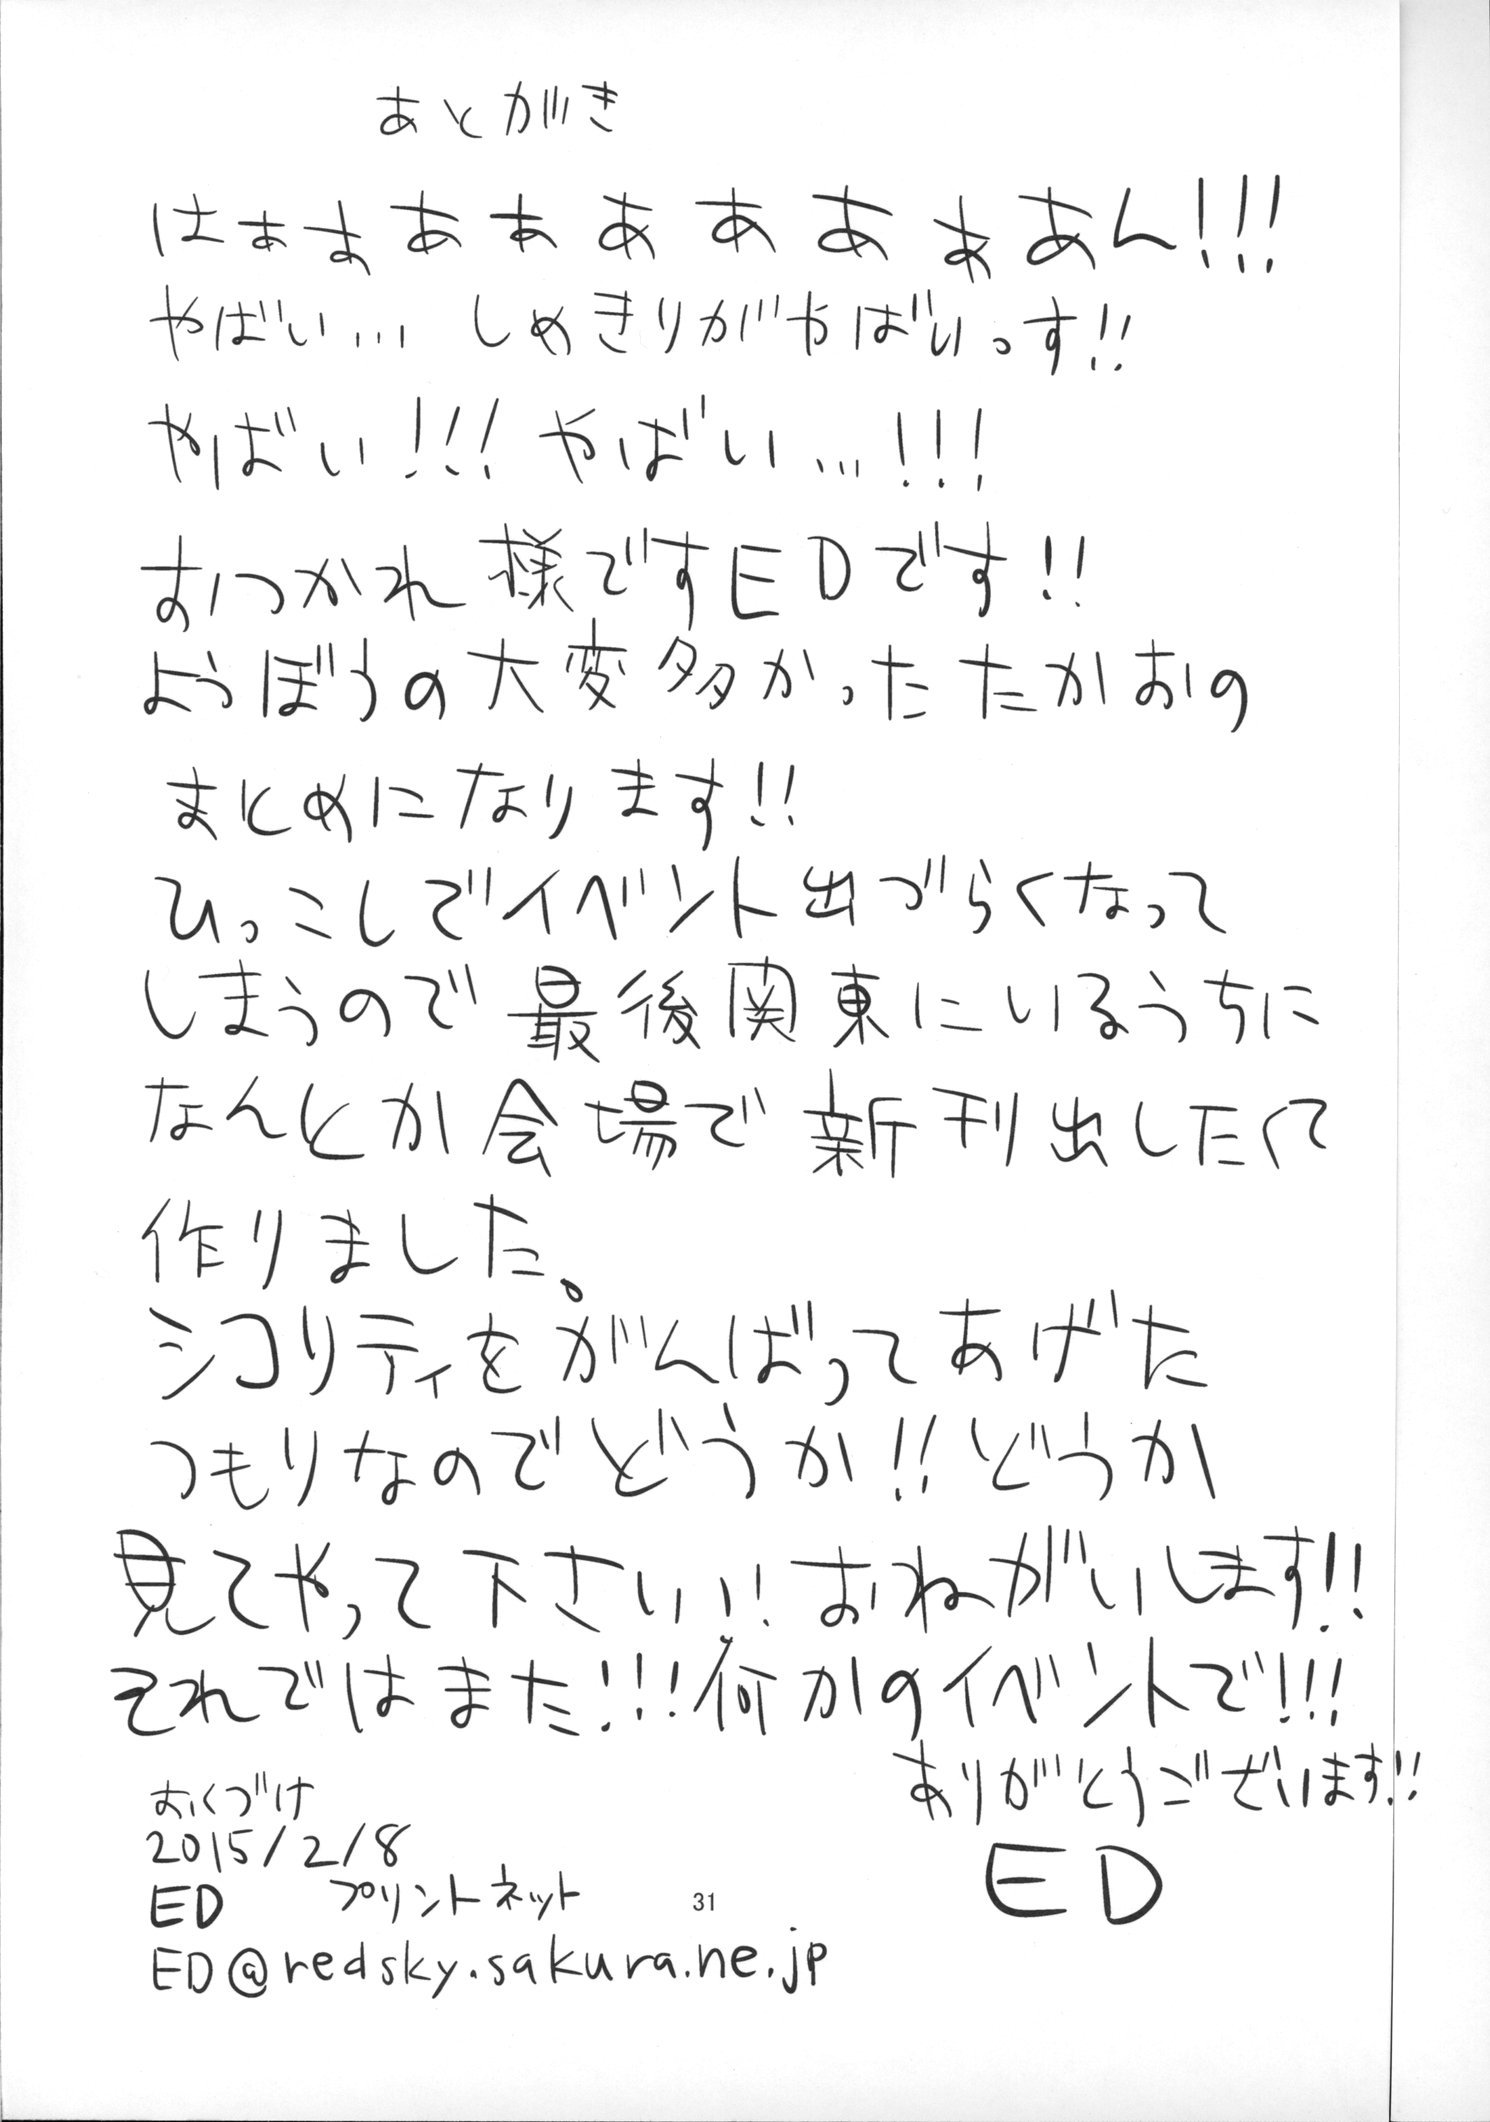 あとがき
はぁぁあぁあああぁあん!!!
やばい… しめきりがやばいっす!!
やばい!!! やばい…!!!
おつかれ様ですEDです!!
ようぼうの大変多かったたかおの
まとめになります!!
ひっこしでイベント出づらくなって
しまうので最後関東にいるうちに
なんとか会場で新刊出したくて
作りました。
シコリティをがんばってあげた
つもりなのでどうか!!どうか
見てやって下さい!!おねがいします!!
それではまた!!!何かのイベントで!!!
ありがとうございます!!
ED
おくづけ
2015/2/8
ED プリントネット
ED@redsky.sakura.ne.jp
31